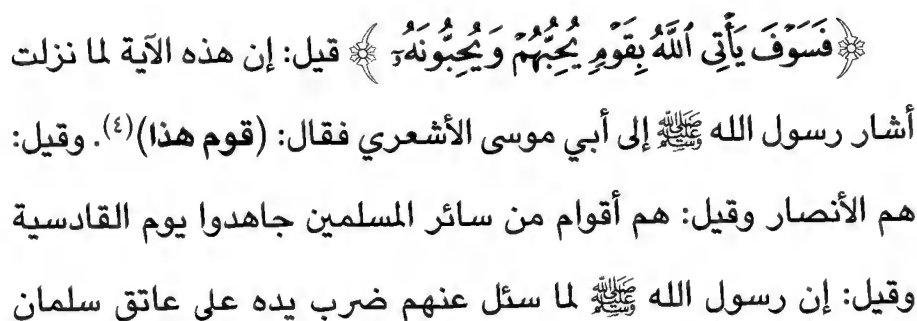 ﴿فَسَوْفَ يَأْتِى ٱللَّهُ بِقَوْمٍ يُحِبُّهُمْ وَيُحِبُّونَهُۥٓ﴾ قيل: إن هذه الآية لما نزلت
أشار رسول الله ﷺ إلى أبي موسى الأشعري فقال: (قوم هذا)(٤). وقيل:
هم الأنصار وقيل: هم أقوام من سائر المسلمين جاهدوا يوم القادسية
وقيل: إن رسول الله ﷺ لما سئل عنهم ضرب يده على عاتق سلمان